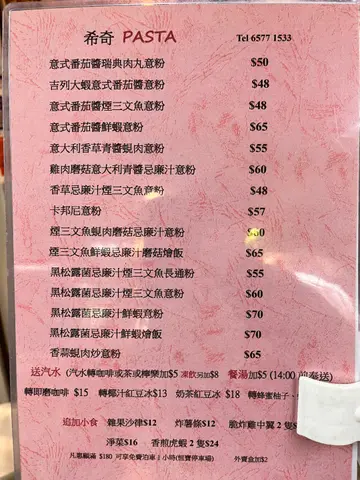 希奇 PASTA Tel 6577 1533
意式番茄醬瑞典肉丸意粉 $50
吉列大蝦意式番茄醬意粉 $48
意式番茄醬煙三文魚意粉 $48
意式番茄醬鮮蝦意粉 $65
意大利香草青醬蜆肉意粉 $55
雞肉磨菇意大利青醬忌廉汁意粉 $60
香草忌廉汁煙三文魚意粉 $48
卡邦尼意粉 $57
煙三文魚蜆肉磨菇忌廉汁意粉
煙三文魚鮮蝦忌廉汁磨菇燴飯 $65
黑松露菌忌廉汁煙三文魚長通粉 $55
黑松露菌忌廉汁煙三文魚意粉 $60
黑松露菌忌廉汁鮮蝦意粉 $70
黑松露菌忌廉汁鮮蝦燴飯 $70
香蒜蜆肉炒意粉 $65
送汽水 (汽水轉咖啡或茶或檸樂加$5 凍飲另加$8 餐湯加$5 (14:00 前奉送)
轉即磨咖啡 $15 轉椰汁紅豆冰$13 奶茶紅豆冰 $18 轉蜂蜜柚子
追加小食 雜果沙律$12 炸薯條$12 脆炸雞中翼 2 隻$
淨菜$16 香煎虎蝦 2 隻$24
凡惠顧滿 $180 可享免費泊車 1 小時(恆寶停車場) 外賣盒加$2